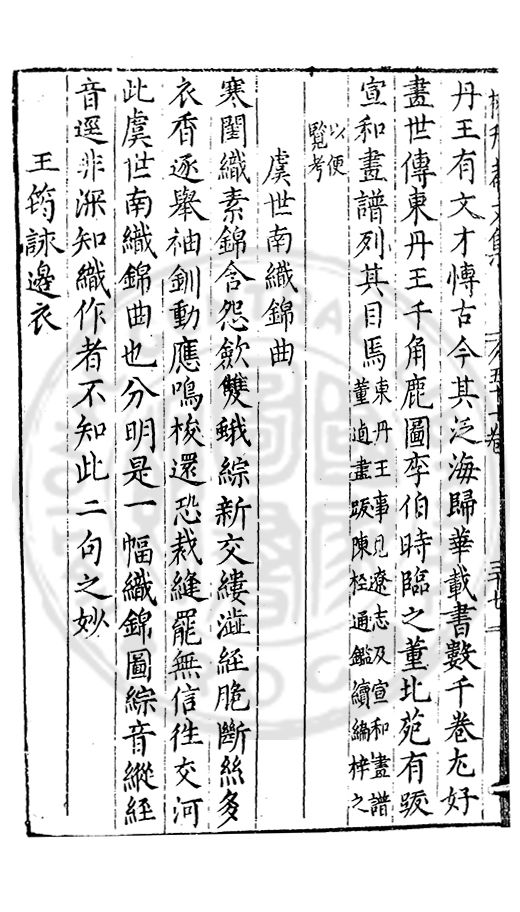 丹王有文才博古今其泛海歸華載書數千卷尤好
畫世傳東丹王千角鹿圖李伯時臨之董北苑有跋
宣和畫譜列其目焉東丹王事見遼志及宣和畫譜
董逌畫跋陳桱通鑑續編梓之
以便
覽考
虞世南織錦曲
寒閨織素錦含怨斂雙蛾綜新交縷澁經脆斷絲多
衣香逐舉袖釧動應鳴梭還恐裁縫罷無信徃交河
此虞世南織錦曲也分明是一幅織錦圖綜音縱經
音逕非深知織作者不知此二句之妙
王筠詠邊衣